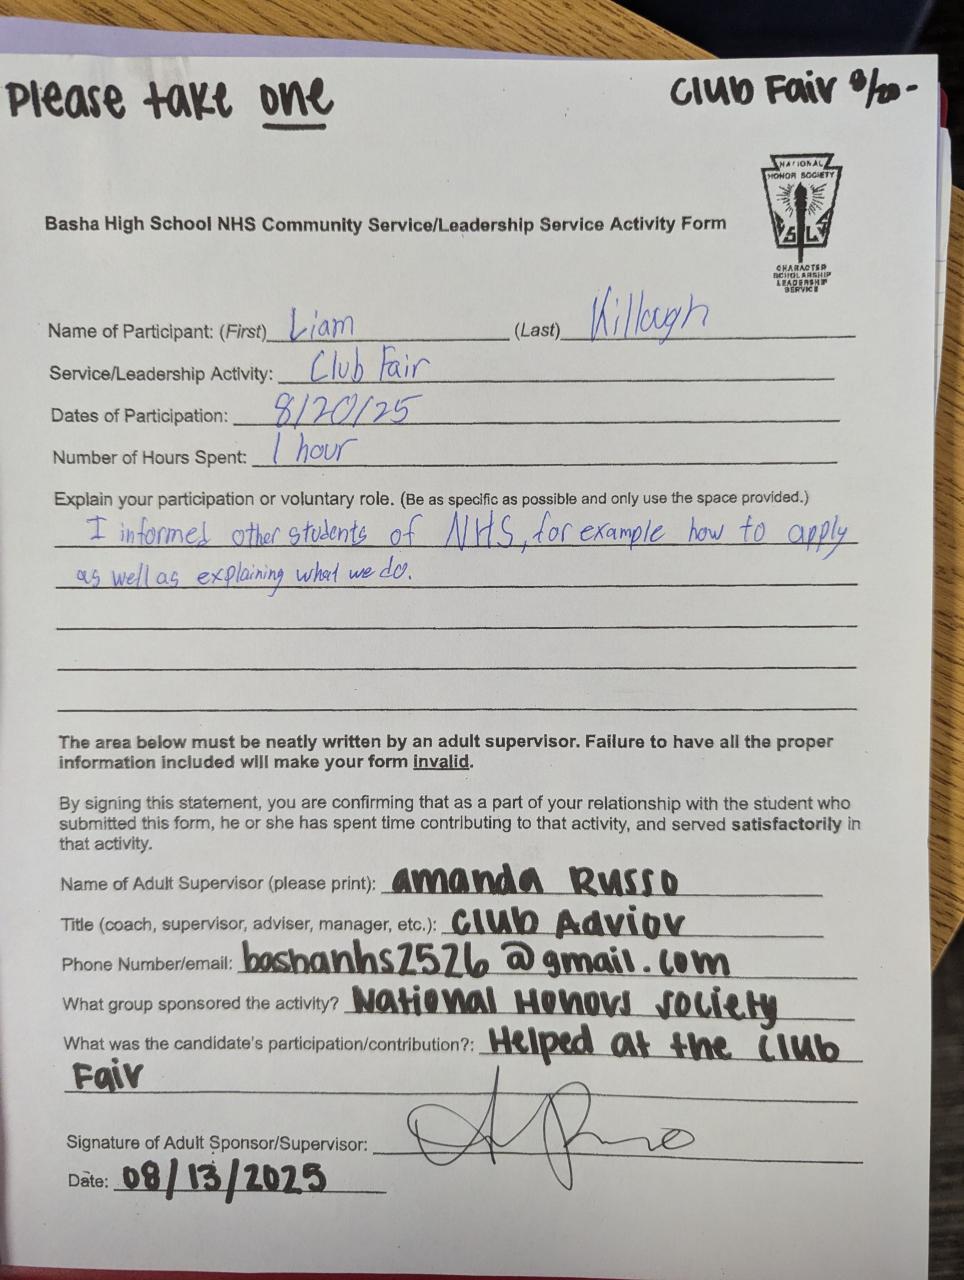 Please take one
Club Fair 8/20-
NATIONAL
HONOR SOCIETY
S L S
CHARACTER
SCHOLARSHIP
LEADERSHIP
SERVICE
Basha High School NHS Community Service/Leadership Service Activity Form
Name of Participant: (First) Liam (Last) Killough
Service/Leadership Activity: Club Fair
Dates of Participation: 8/20/25
Number of Hours Spent: 1 hour
Explain your participation or voluntary role. (Be as specific as possible and only use the space provided.)
I informed other students of NHS, for example how to apply
as well as explaining what we do.
The area below must be neatly written by an adult supervisor. Failure to have all the proper
information included will make your form invalid.
By signing this statement, you are confirming that as a part of your relationship with the student who
submitted this form, he or she has spent time contributing to that activity, and served satisfactorily in
that activity.
Name of Adult Supervisor (please print): Amanda Russo
Title (coach, supervisor, adviser, manager, etc.): Club Advior
Phone Number/email: bashanhs2526@gmail.com
What group sponsored the activity? National Honors Society
What was the candidate's participation/contribution?: Helped at the Club
Fair
Signature of Adult Sponsor/Supervisor:
Date: 08/13/2025